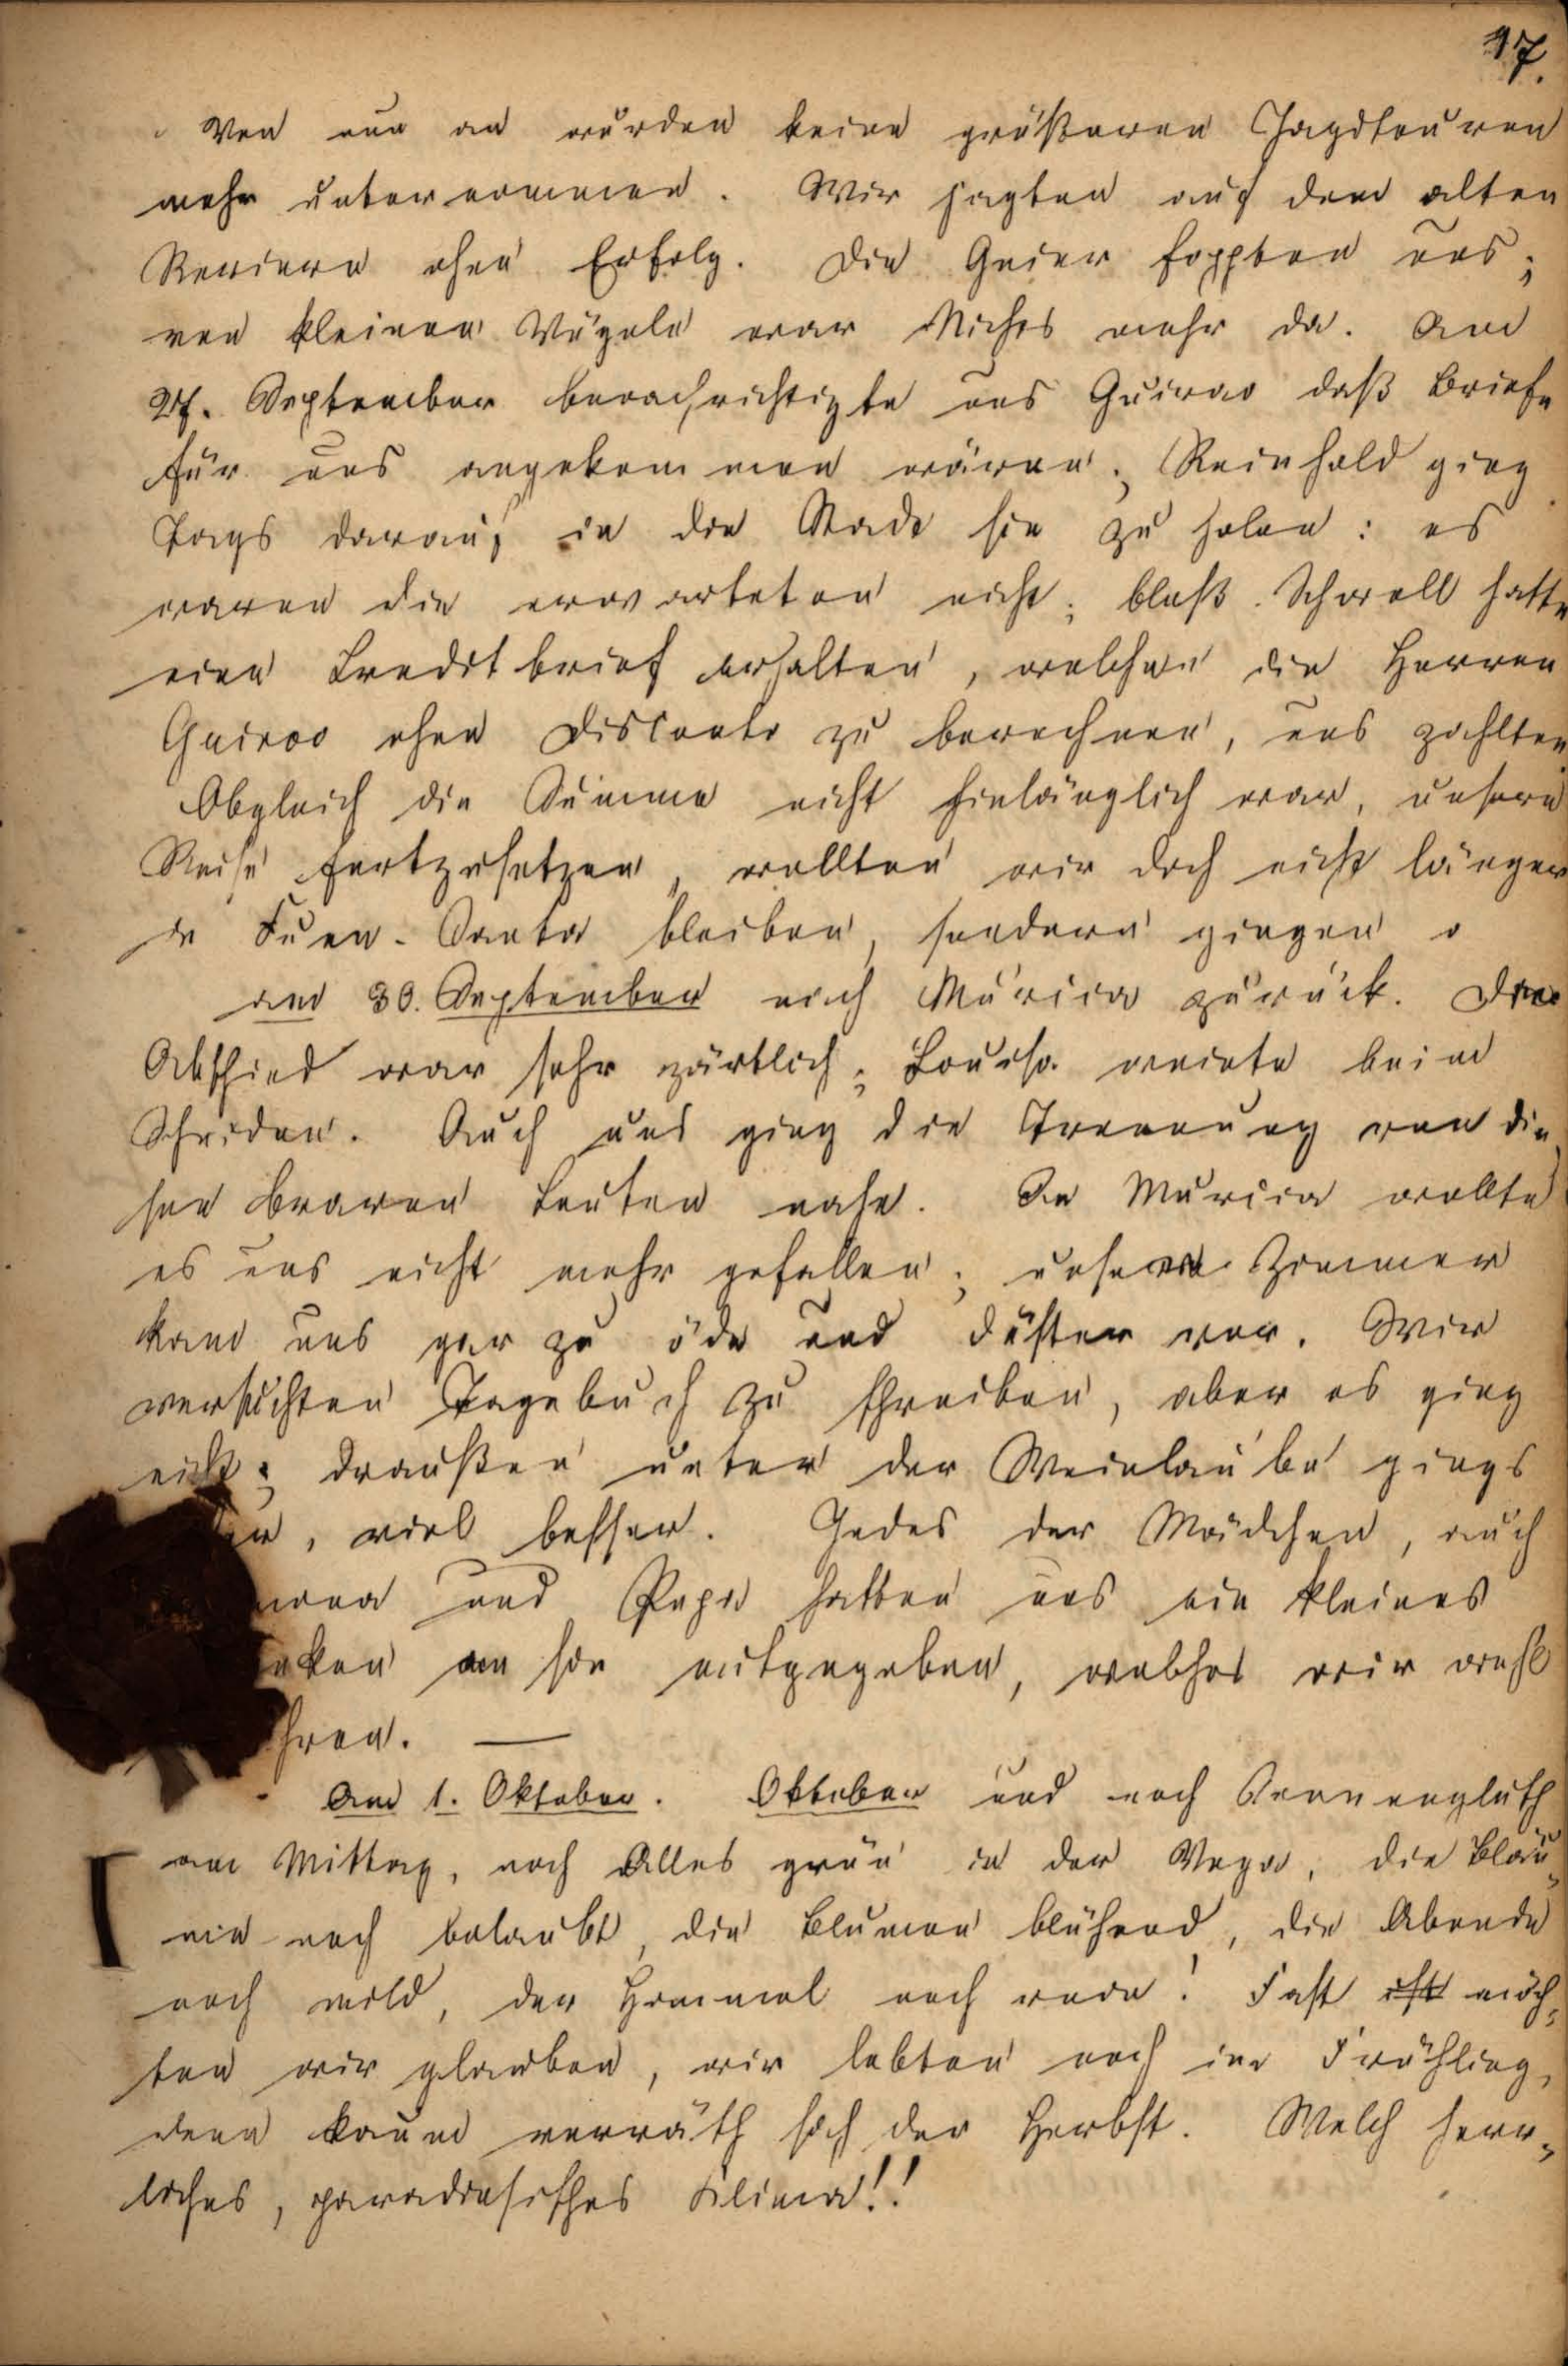 17.
Von nun an wurden keine größeren Jagdtouren
mehr unternommen. Wir jagten auf den alten
Revieren ohne Erfolg. Die Geier foppten uns;
von kleinen Vögeln war Nichts mehr da. Am
27. September benachrichtigte uns Guirao daß Briefe
für uns angekommen wären; Reinhold ging
Tags darauf in die Stadt sie zu holen: es
waren die erwarteten nicht; bloß Schroll hatte
einen Creditbrief erhalten, welchen die Herren
Guirao ohne Disconto zu berechnen, uns zahlten
Obgleich die Summe nicht hinlänglich war, unsere
Reise fortzusetzen, wollten wir doch nicht länger
in Fuen-Santa bleiben, sondern gingen
am 30. September nach Murcia zurück. Der
Abschied war sehr zärtlich; Louisa weinte beim
Scheiden. Auch uns ging die Trennung von die-
sen braven Leuten nahe. In Murcia wollte
es uns nicht mehr gefallen; unser Zimmer
kam uns gar zu öde und düster vor. Wir
versuchten Tagebuch zu schreiben, aber es ging
nicht; draußen unter der Weinlaube gings
, viel besser. Jedes der Mädchen, auch
und Papa hatten uns ein kleines
nken an sie mitgegeben, welches wir wohl
hren. —
Am 1. Oktober. Oktober und noch Sonnengluth
am Mittag, noch Alles grün in der Vega, die Bäu-
me noch belaubt, die Blumen blühend, die Abende
noch mild, der Himmel noch rein! Fast ist möch-
ten wir glauben, wir lebten noch im Frühling,
denn kaum verräth sich der Herbst. Welch herr-
liches, paradiesisches Klima!!